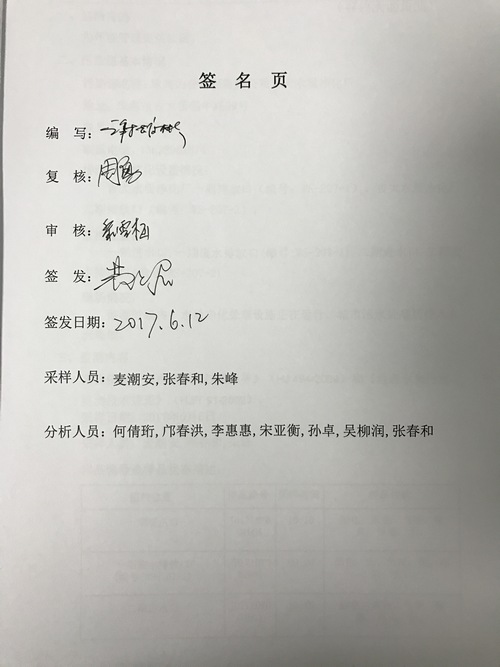 签名页
编 写：
复 核：周勇
审 核：
签 发：
签发日期：2017.6.12
采样人员：麦潮安,张春和,朱峰
分析人员：何倩珩,邝春洪,李惠惠,宋亚衡,孙卓,吴柳润,张春和